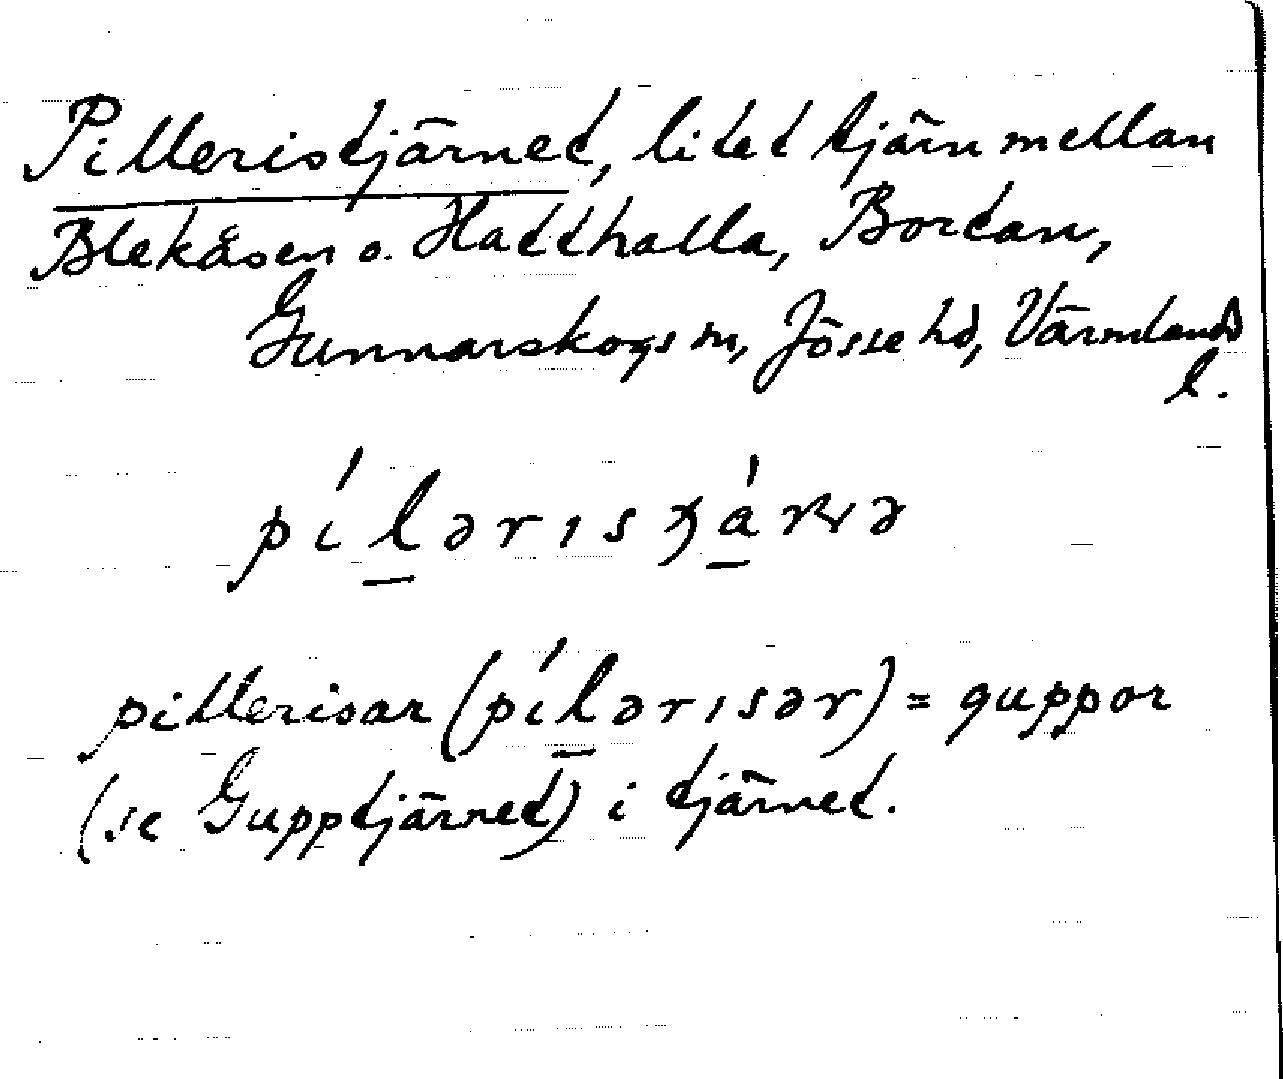 Pilleristjärnet, litet tjärn mellan
Blekåsen o. Hatthalla, Bortan,
Gunnarskogs sn, Jösse hd, Värmlands
l.
píləris
pillerisar (pílərisər) = guppor
(se Gupptjärnet) i tjärnet.